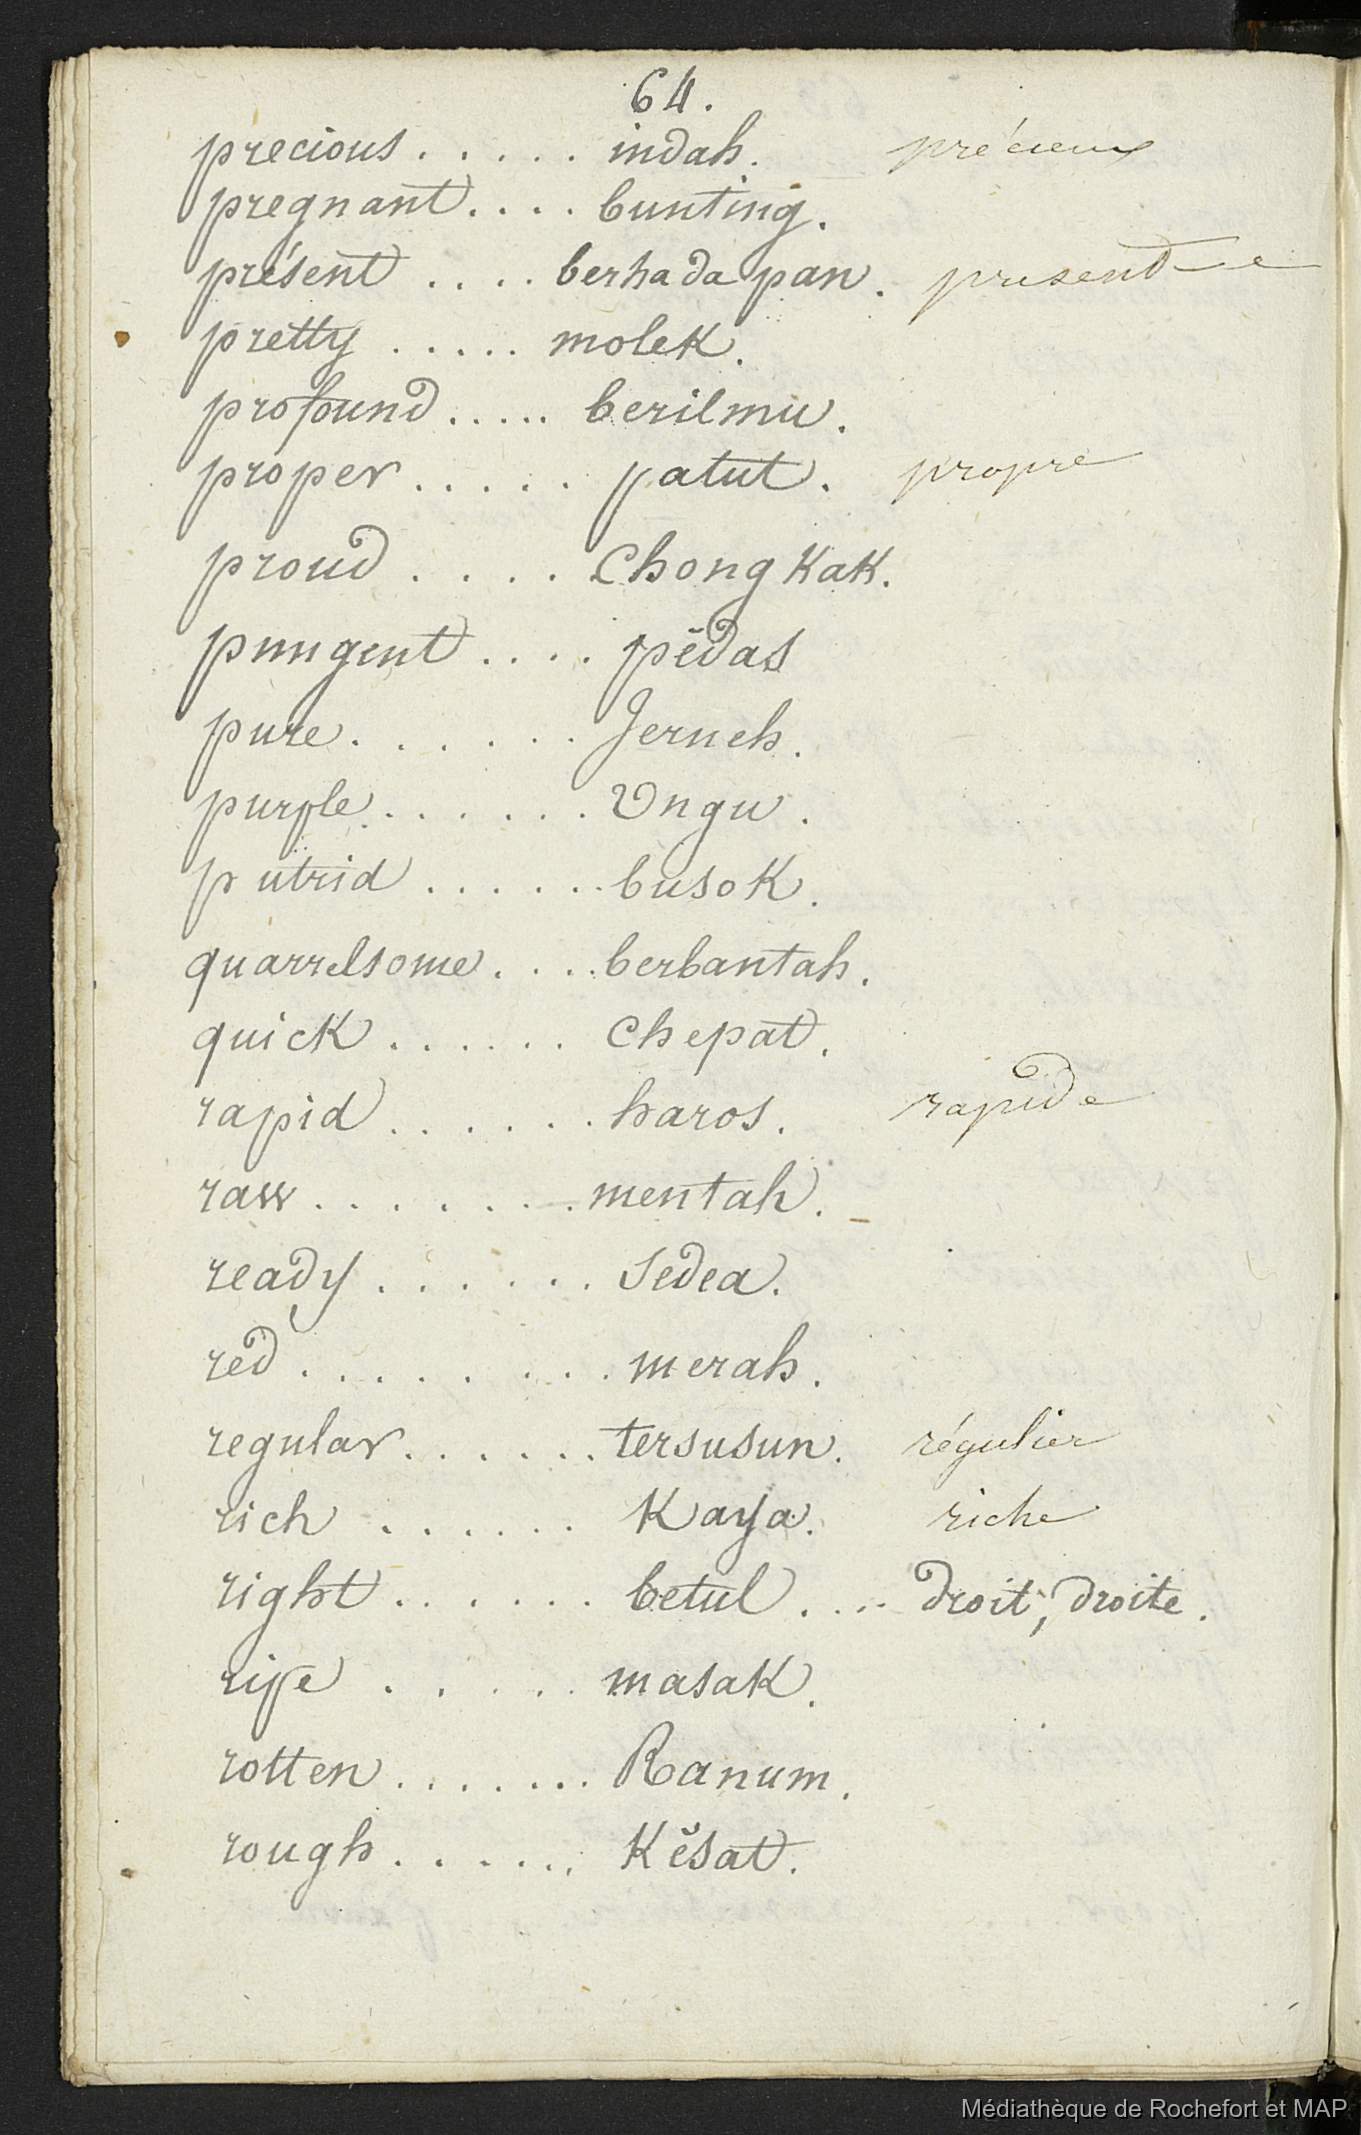 64.
precious . . . . . indah. précieux
pregnant. . . . bunting.
présent . . . . berhadapan. present e
pretty . . . . . molek.
profound . . . . . berilmu.
proper . . . . . patut. propre
proud . . . . Chongkak.
pungent . . . . pĕdas
pure . . . . . . Jerneh.
purple . . . . . . Ungu.
putrid . . . . . . busok.
quarrelsome . . . . berbantah.
quick . . . . . . Chepat.
rapid . . . . . . haros. rapide
raw . . . . . . . mentah.
ready . . . . . . Sedea.
red . . . . . . . . merah.
regular . . . . . . tersusun. régulier
rich . . . . . . Kaya. riche
right . . . . . . betul . . . . droit, droite.
ripe . . . . . masak.
rotten . . . . . . . Ranum.
rough . . . . . . Kĕsat.
Médiathèque de Rochefort et MAP